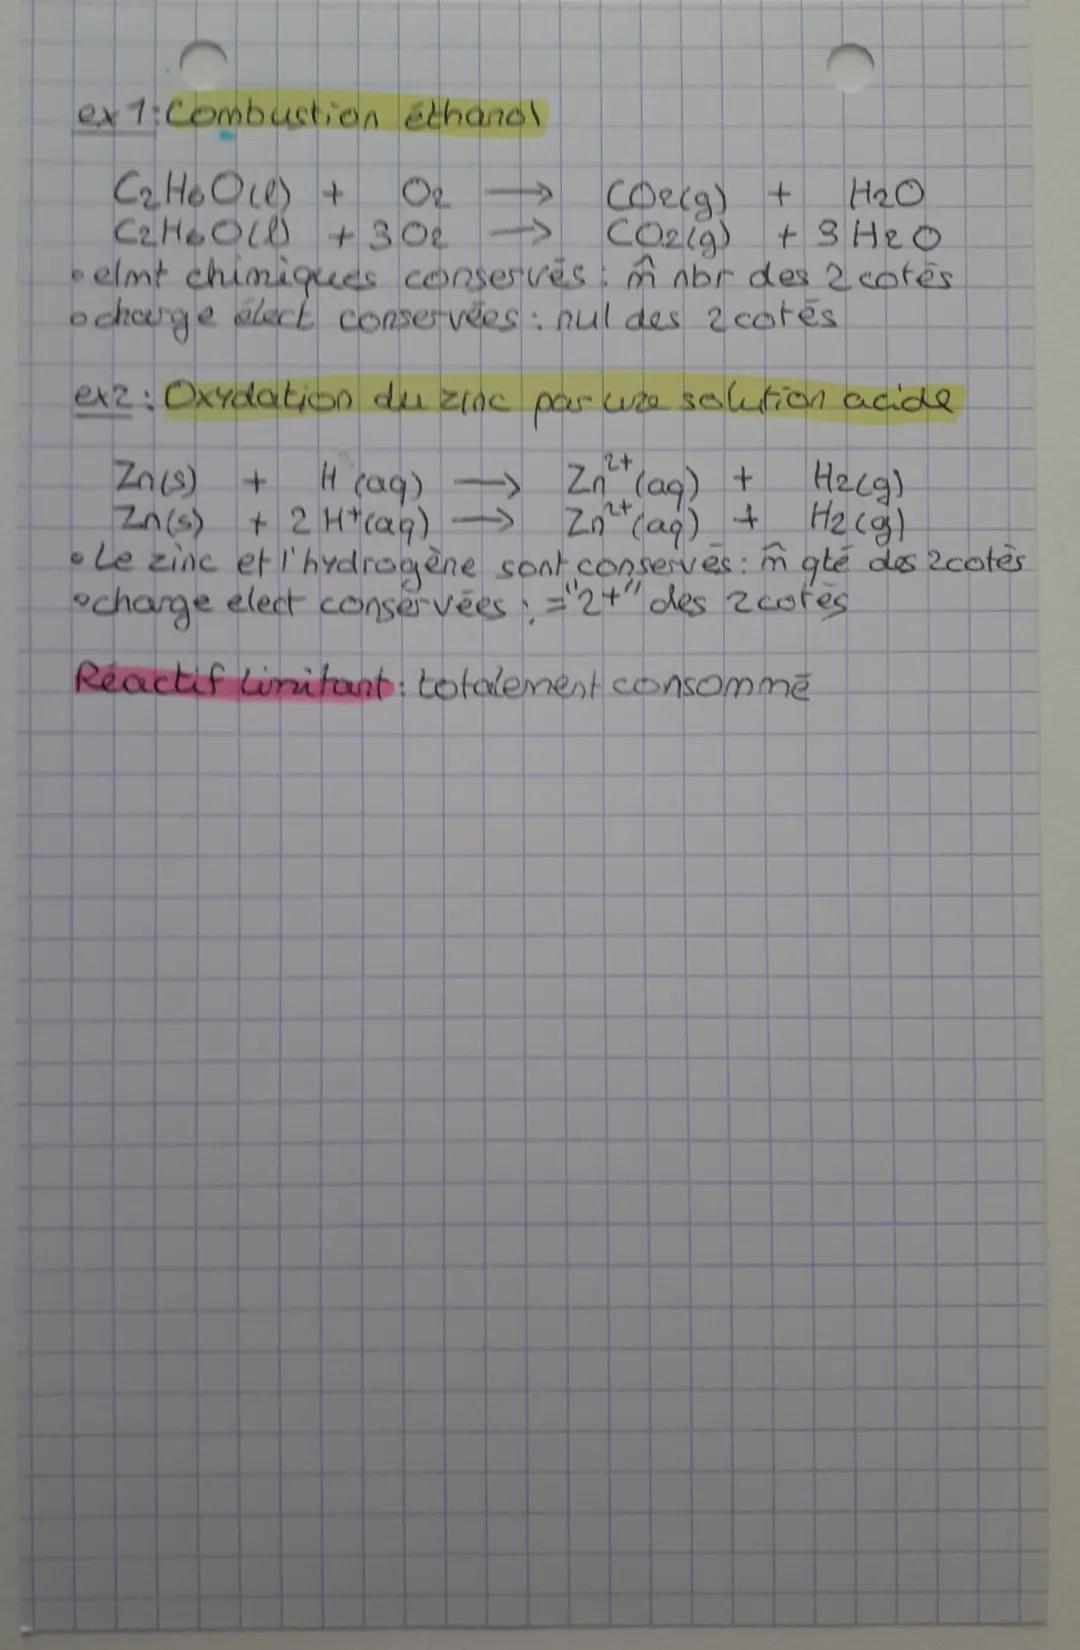 ex 1: Combustion éthanol
C2H6O(l) + O2 → CO2(g) + H2O
C2H6O(l) + 3 O2 → CO2(g) + 3 H2O
• elmt chimiques conservés : m̂ nbr des 2 cotés
• charge élect conservées : nul des 2 cotés
ex2 : Oxydation du zinc par une solution acide
Zn(s) + H (aq) → Zn²⁺(aq) + H2(g)
Zn(s) + 2 H⁺(aq) → Zn²⁺(aq) + H2(g)
• Le zinc et l'hydrogène sont conservés : m̂ qté des 2 cotés
• charge elect conservées : = "2+" des 2 cotés
Réactif Limitant : totalement consommé